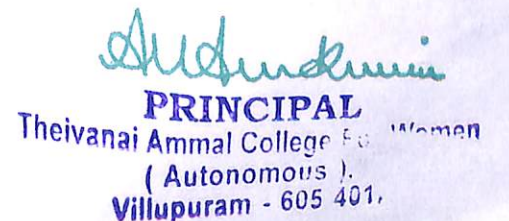 PRINCIPAL
Theivanai Ammal College Fo Women
( Autonomous ).
Villupuram - 605 401.